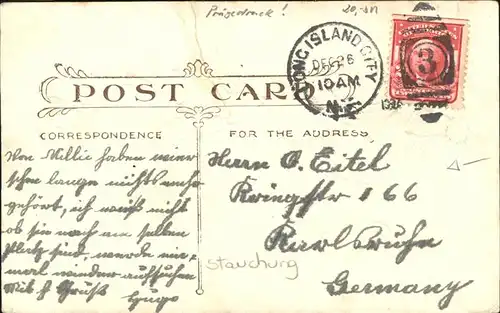 Prägedruck! 20,- DM
LONG ISLAND CITY
DEC 26
10 AM
N.Y.
3
POST CARD
CORRESPONDENCE
FOR THE ADDRESS
Von Willie haben wir
schon lange nichts mehr
gehört, ich weiß nicht
ob sie noch am selben
Platz sind, werde
mal wieder aufsuchen
Mit Gruß
Hugo
Herrn O. Eitel
Ringstr 166
Karlsruhe
Stauchung
Germany